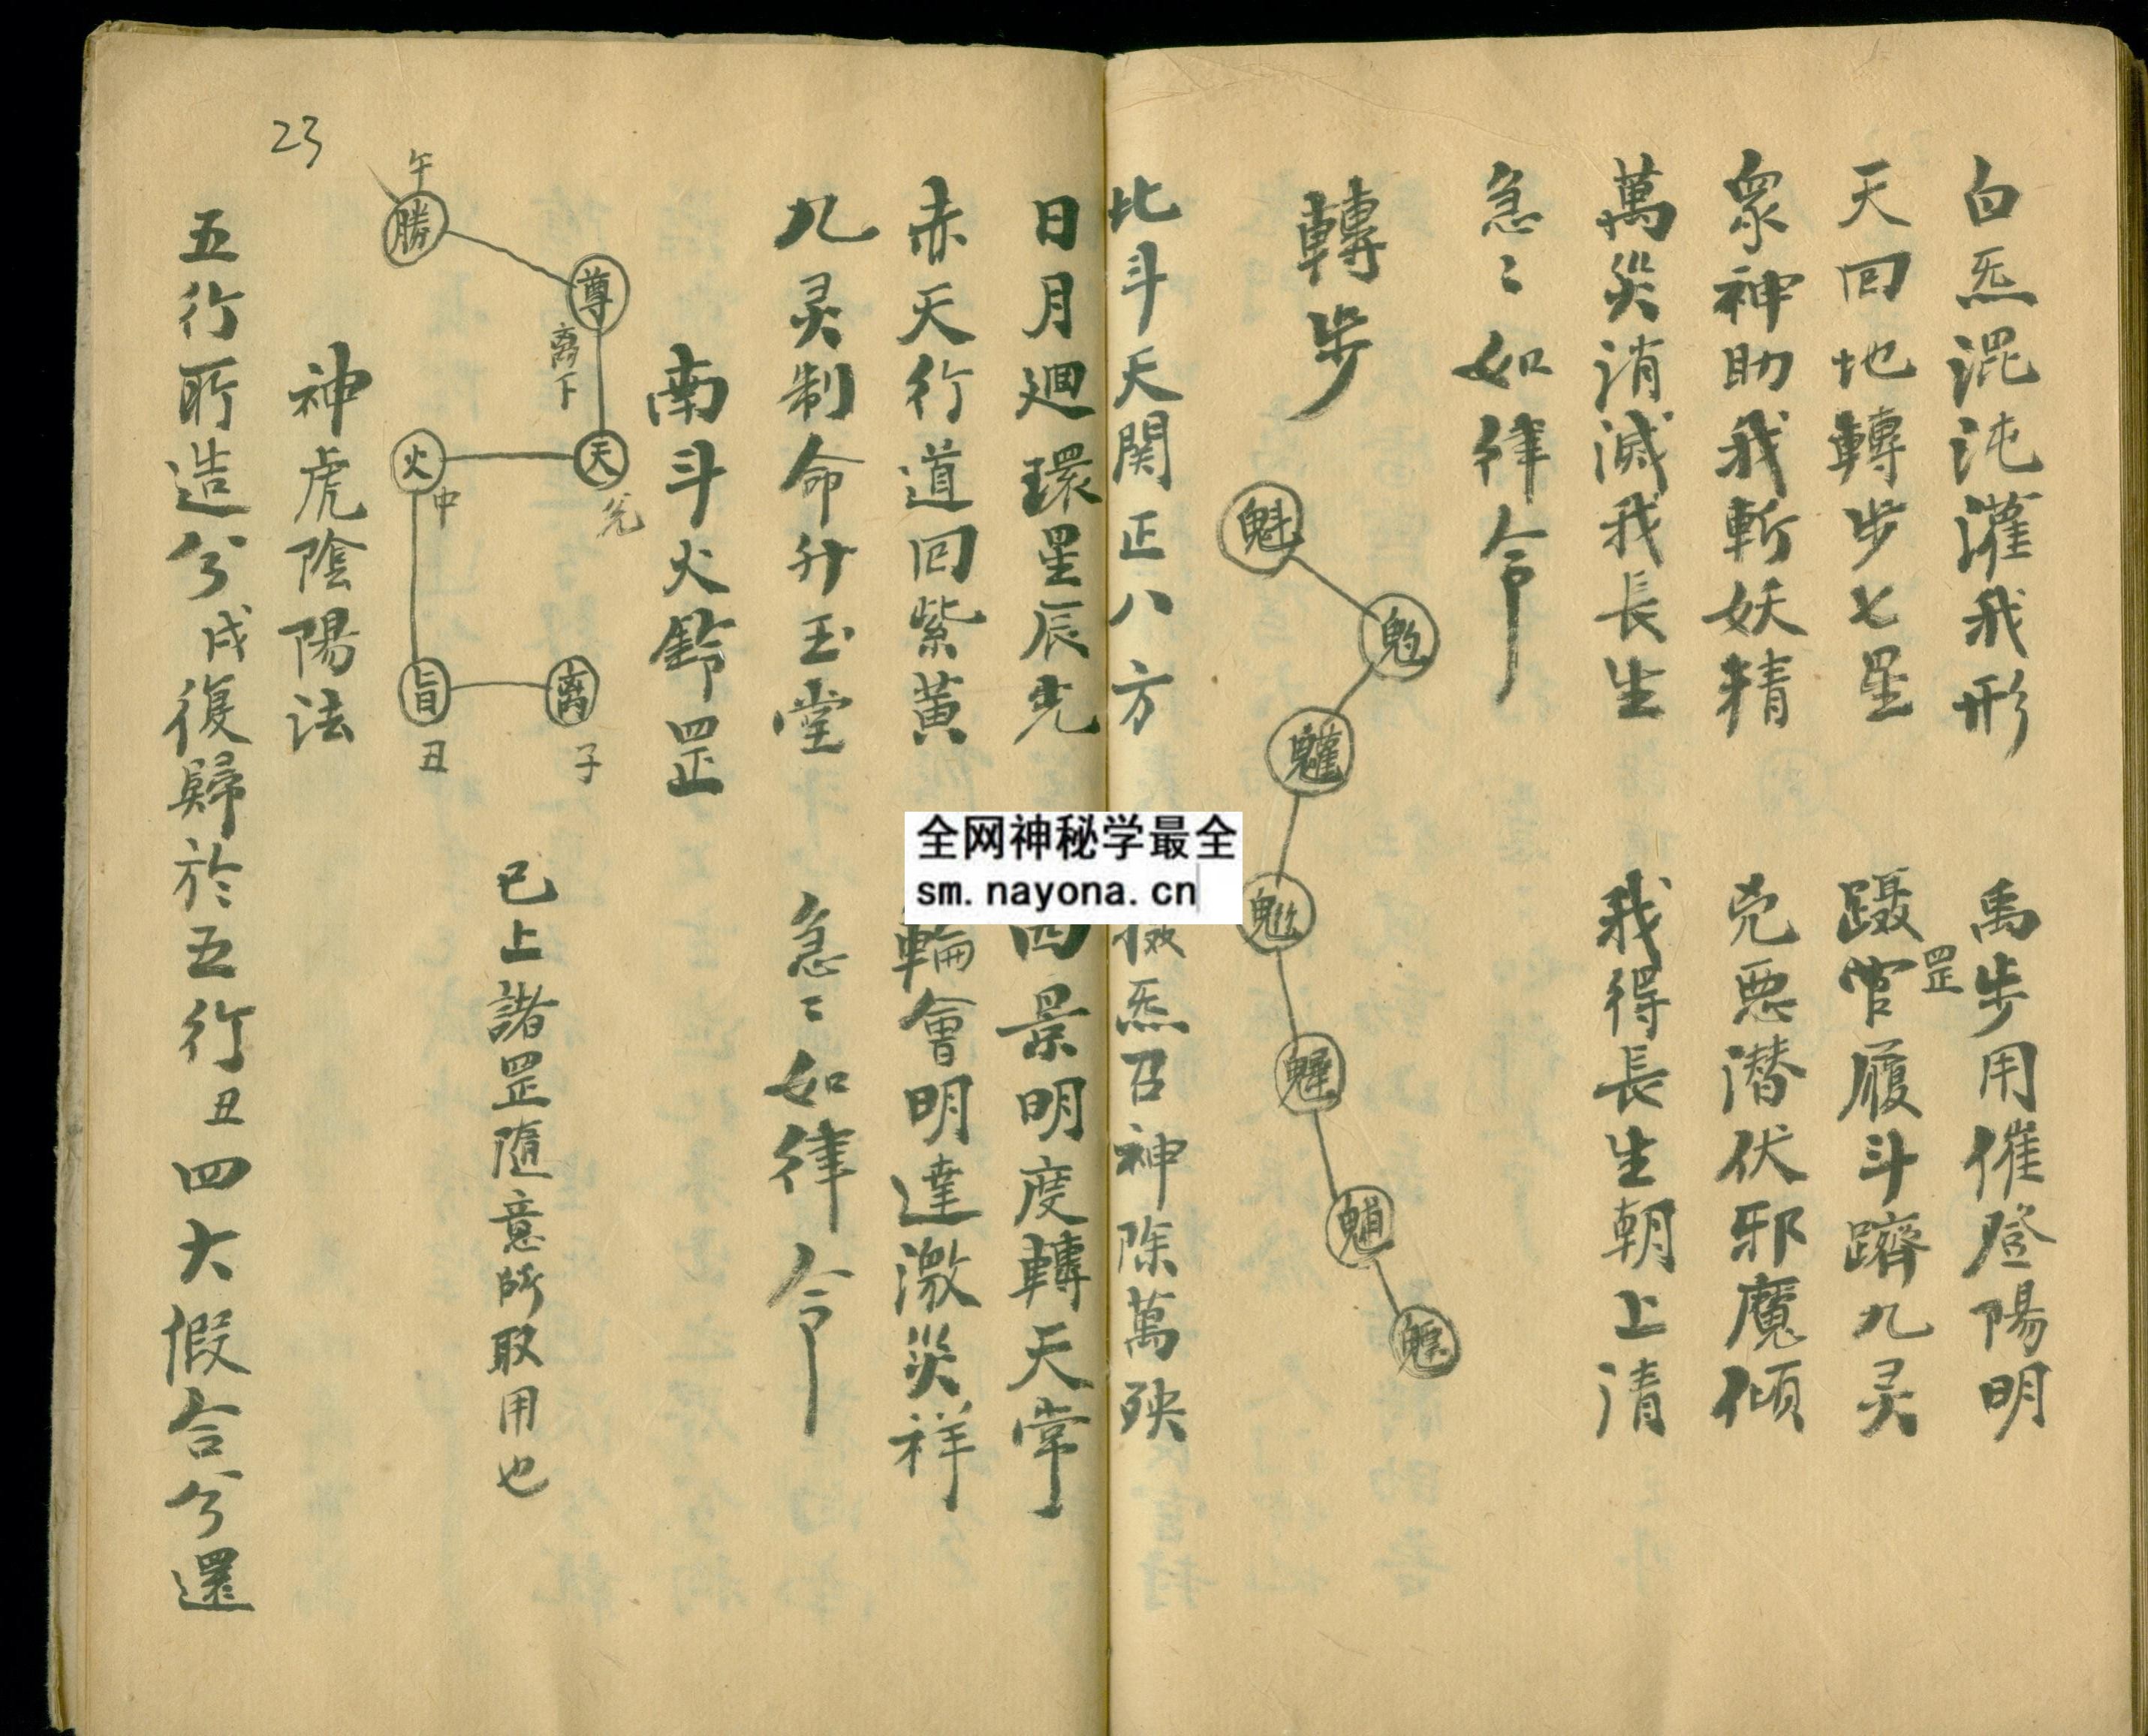 白炁混沌灌我形 禹步用催登陽明
天回地轉步七星 躡罡履斗躋九灵
官
眾神助我斬妖精 兇惡潛伏邪魔傾
萬災消滅我長生 我得長生朝上清
急〻如律令
轉步
魁
魁
魓
北斗天関正八方 炁召神除萬殃
日月廻環星辰光 景明度轉天常
赤天行道回紫黃 輪會明達激災祥
九灵制命升玉堂 急〻如律令
南斗火鈴罡
午
勝
尊
离下
天
兊
火
中
旨
丑
离
子
已上諸罡隨意所取用也
神虎陰陽法
五行所造兮戌復歸於五行丑四大假合兮還
23
全网神秘学最全
sm.nayona.cn